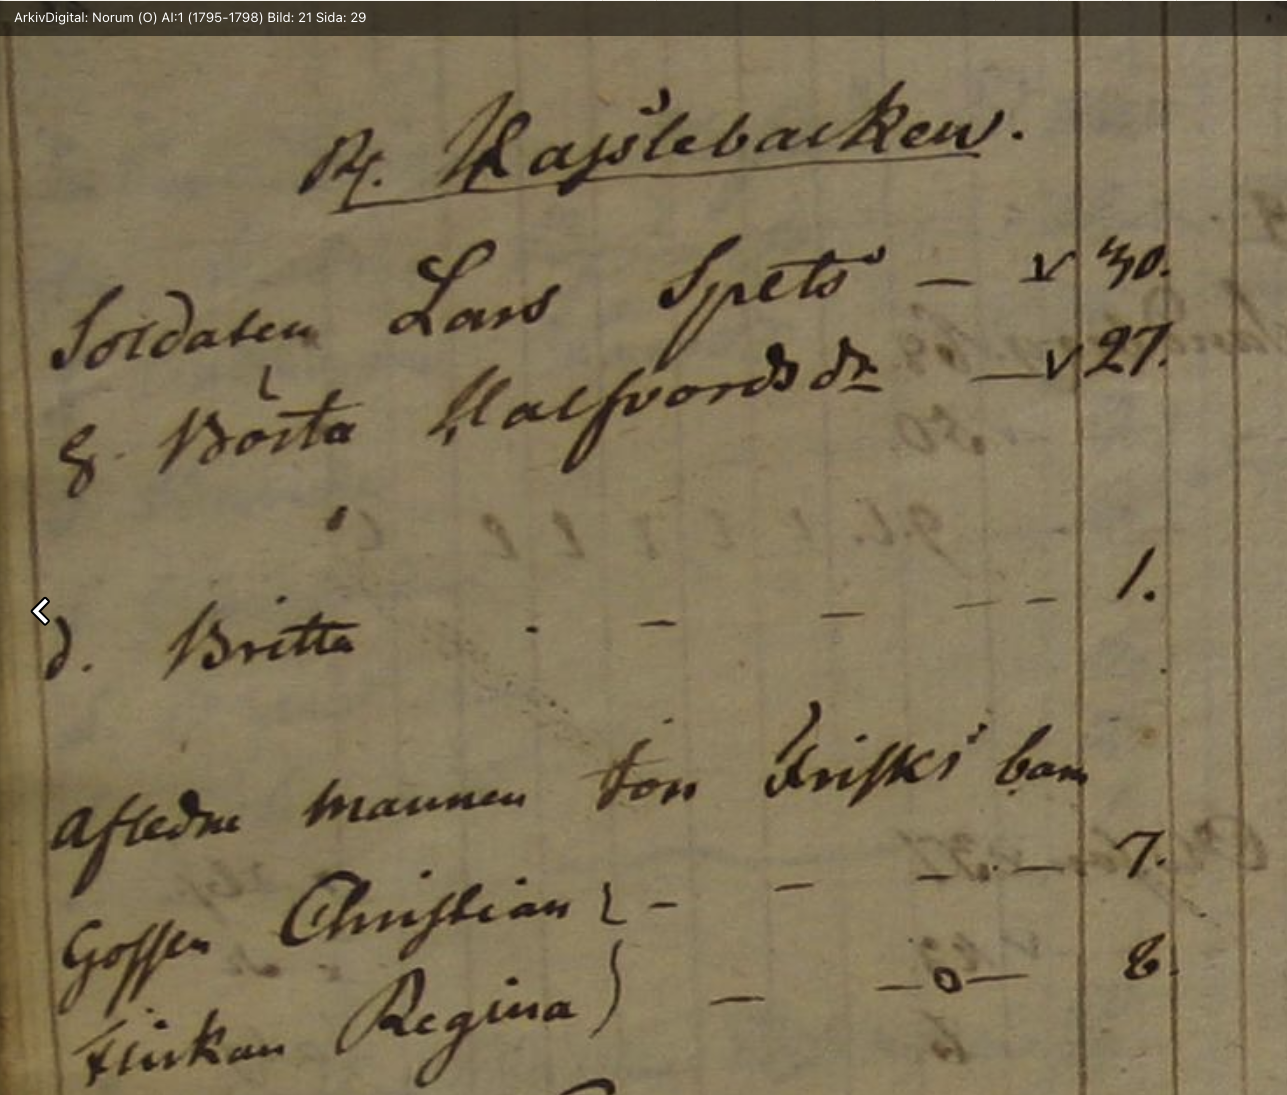 ArkivDigital: Norum (O) AI:1 (1795-1798) Bild: 21 Sida: 29
Soldaten Lars Spets — v 30.
g. Börta Halfvords dr — v 27.
d. Britta - — — — — 1.
Afledne mannen Jon Frisks barn
Gossen Christian } — — — — 7.
Flickan Regina } — —o— 8.